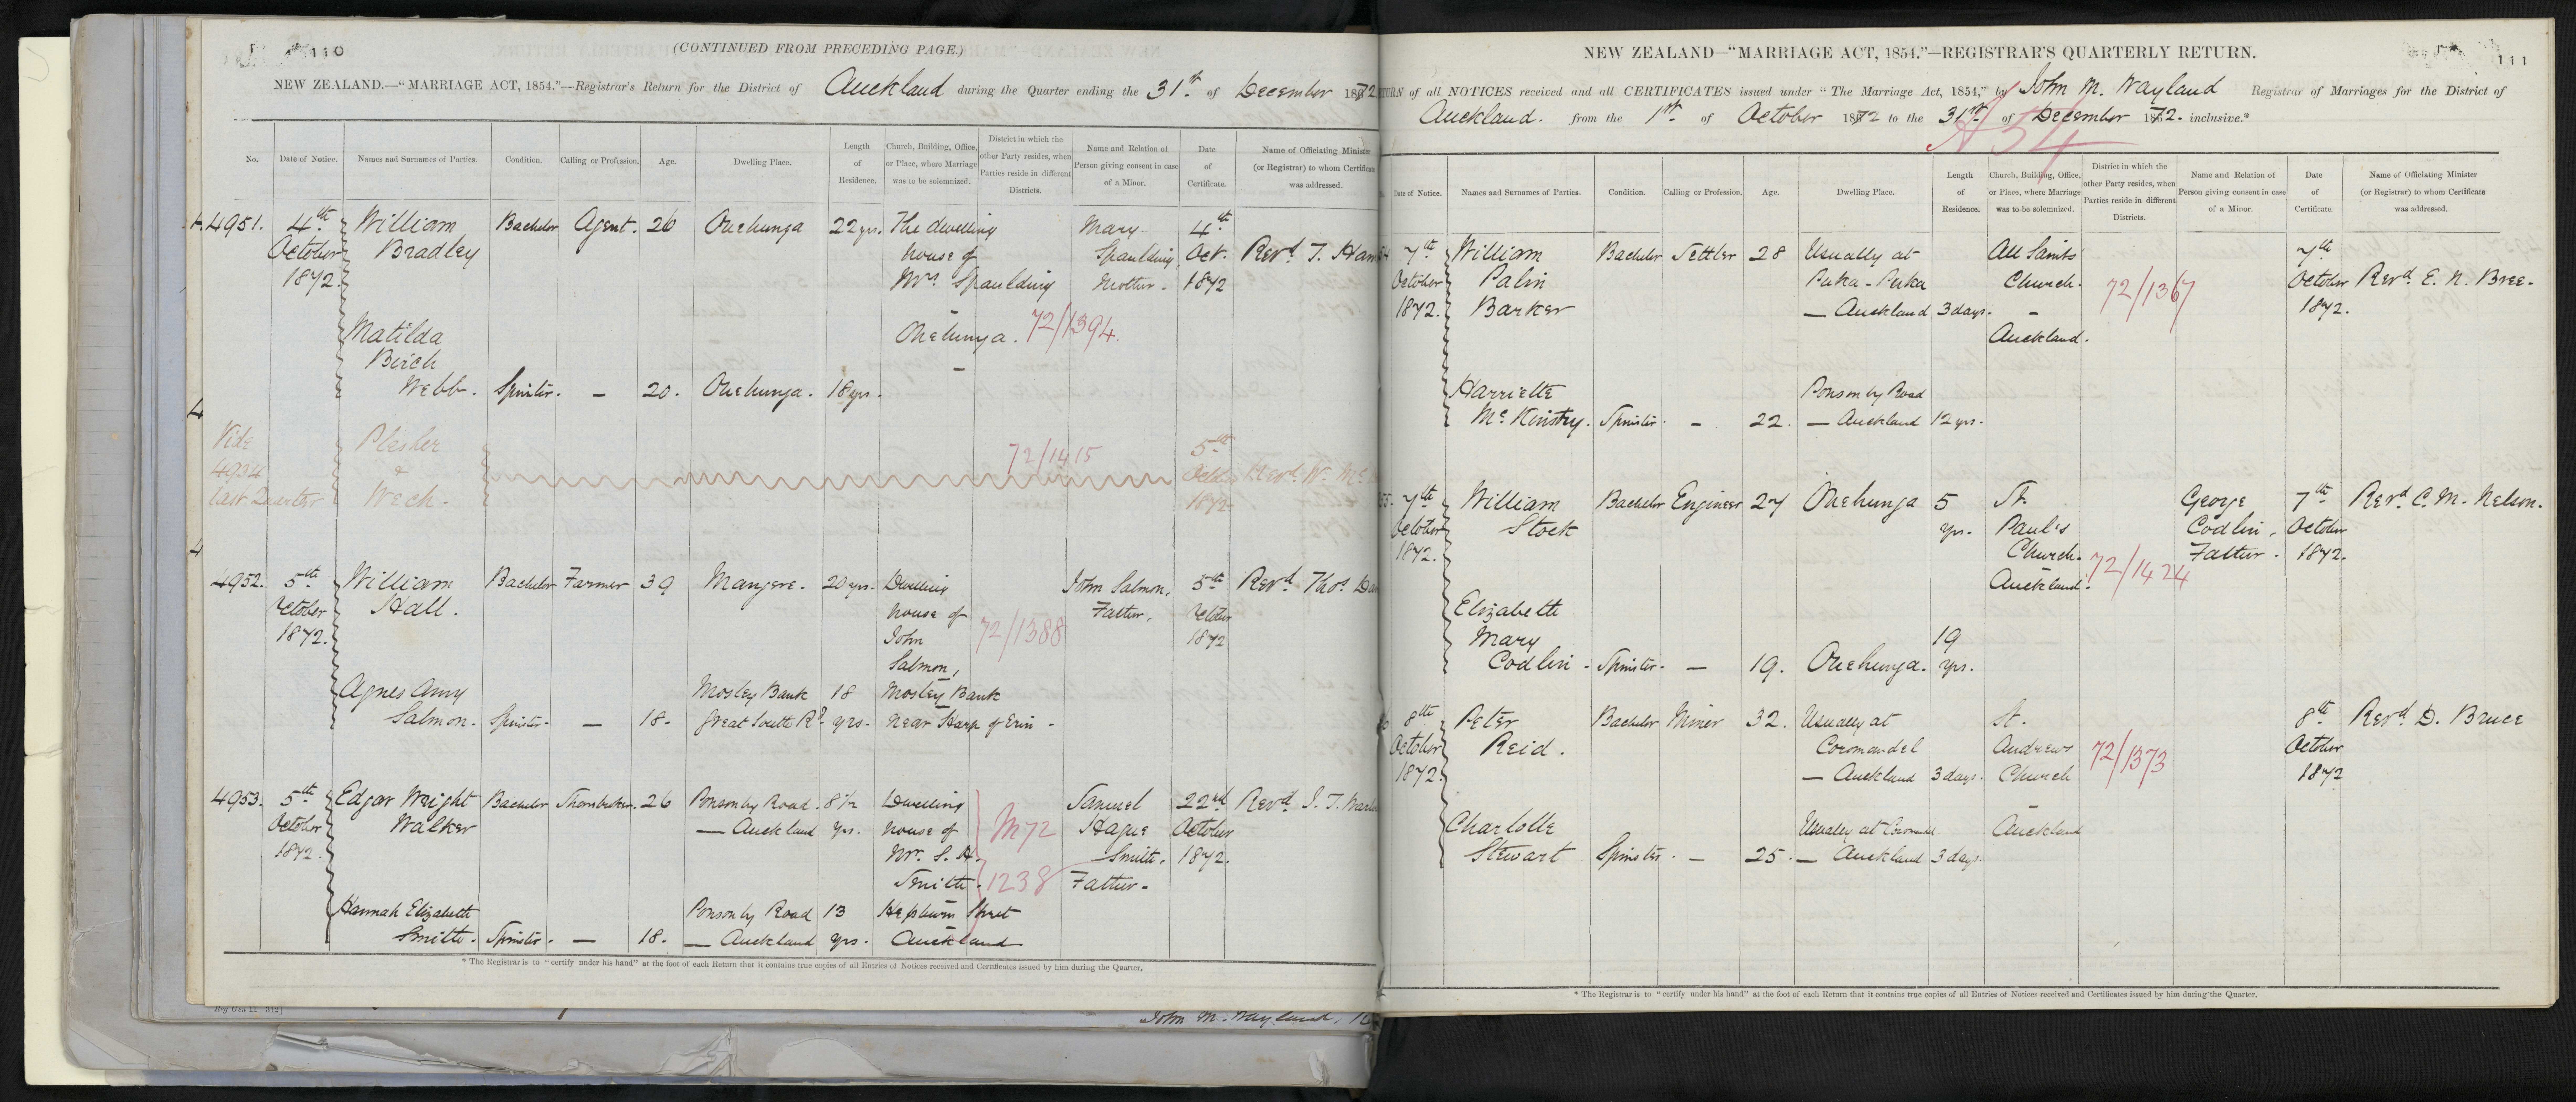 110
(CONTINUED FROM PRECEDING PAGE.)
NEW ZEALAND.—"MARRIAGE ACT, 1854."—Registrar's Return for the District of Auckland during the Quarter ending the 31st of December 1872
No. Date of Notice. Names and Surnames of Parties. Condition. Calling or Profession. Age. Dwelling Place. Length of Residence. Church, Building, Office, or Place, where Marriage was to be solemnized. District in which the other Party resides, when Parties reside in different Districts. Name and Relation of Person giving consent in case of a Minor. Date of Certificate. Name of Officiating Minister (or Registrar) to whom Certificate was addressed.
4951. 4th William Bachelor Agent. 26 Onehunga 22 yrs. The dwelling Mary 4th
October Bradley house of Spaulding, Oct. Revd. T.
1872. Mrs. Spaulding Mother. 1872
Matilda Onehunga. 72/1394
Birch
Webb. Spinster. — 20. Onehunga. 18 yrs.
4
Vide Plesher 5th
4934 & 72/1415 Octr. Revd. W.
last Quarter Wech. 1872
4
4952. 5th William Bachelor Farmer 39 Mangere. 20 yrs. Dwelling John Salmon, 5th Revd. Thos.
October Hall. house of Father. October
1872. John 72/1388 1872
Salmon,
Agnes Amy Mosley Bank 18 Mosley Bank
Salmon. Spinster. — 18. Great South Rd. yrs. near Harp of Erin.
4953. 5th Edgar Wright Bachelor 26 Ponsonby Road. 8½ Dwelling Samuel 22nd Revd. J. T.
October Walker — Auckland yrs. house of M72 Hague October
1872. Mr. S. H. Smith. 1872.
Smith. 1238 Father.
Hannah Elizabeth Ponsonby Road 13 Hepburn Street
Smith. Spinster. — 18. — Auckland yrs. Auckland
* The Registrar is to "certify under his hand" at the foot of each Return that it contains true copies of all Entries of Notices received and Certificates issued by him during the Quarter.
Reg Gen 11—312]
John M. Wayland,
111
NEW ZEALAND—"MARRIAGE ACT, 1854."—REGISTRAR'S QUARTERLY RETURN.
TURN of all NOTICES received and all CERTIFICATES issued under "The Marriage Act, 1854," by John M. Wayland Registrar of Marriages for the District of
Auckland. from the 1st of October 1872 to the 31st of December 1872. inclusive.*
A54
Date of Notice. Names and Surnames of Parties. Condition. Calling or Profession. Age. Dwelling Place. Length of Residence. Church, Building, Office, or Place, where Marriage was to be solemnized. District in which the other Party resides, when Parties reside in different Districts. Name and Relation of Person giving consent in case of a Minor. Date of Certificate. Name of Officiating Minister (or Registrar) to whom Certificate was addressed.
54 7th William Bachelor Settler 28 Usually at All Saints 7th
October Palin Puka-Puka Church. 72/1367 October Revd. E. N. Bree.
1872. Barker — Auckland 3 days. — 1872.
Auckland.
Harriette Ponsonby Road
McKinstry. Spinster. — 22. — Auckland 12 yrs.
55. 7th William Bachelor Engineer 27 Onehunga 5 St. George 7th Revd. C. M. Nelson.
October Stock yrs. Paul's Codlin, October
1872. Church. Father. 1872.
Auckland. 72/1424
Elizabeth
Mary 19
Codlin. Spinster. — 19. Onehunga. yrs.
6 8th Peter Bachelor Miner 32. Usually at St. 8th Revd. D. Bruce
October Reid. Coromandel Andrews 72/1373 October
1872. — Auckland 3 days. Church 1872
Charlotte Usually at Auckland
Stewart Spinster. — 25. — Auckland 3 days.
* The Registrar is to "certify under his hand" at the foot of each Return that it contains true copies of all Entries of Notices received and Certificates issued by him during the Quarter.